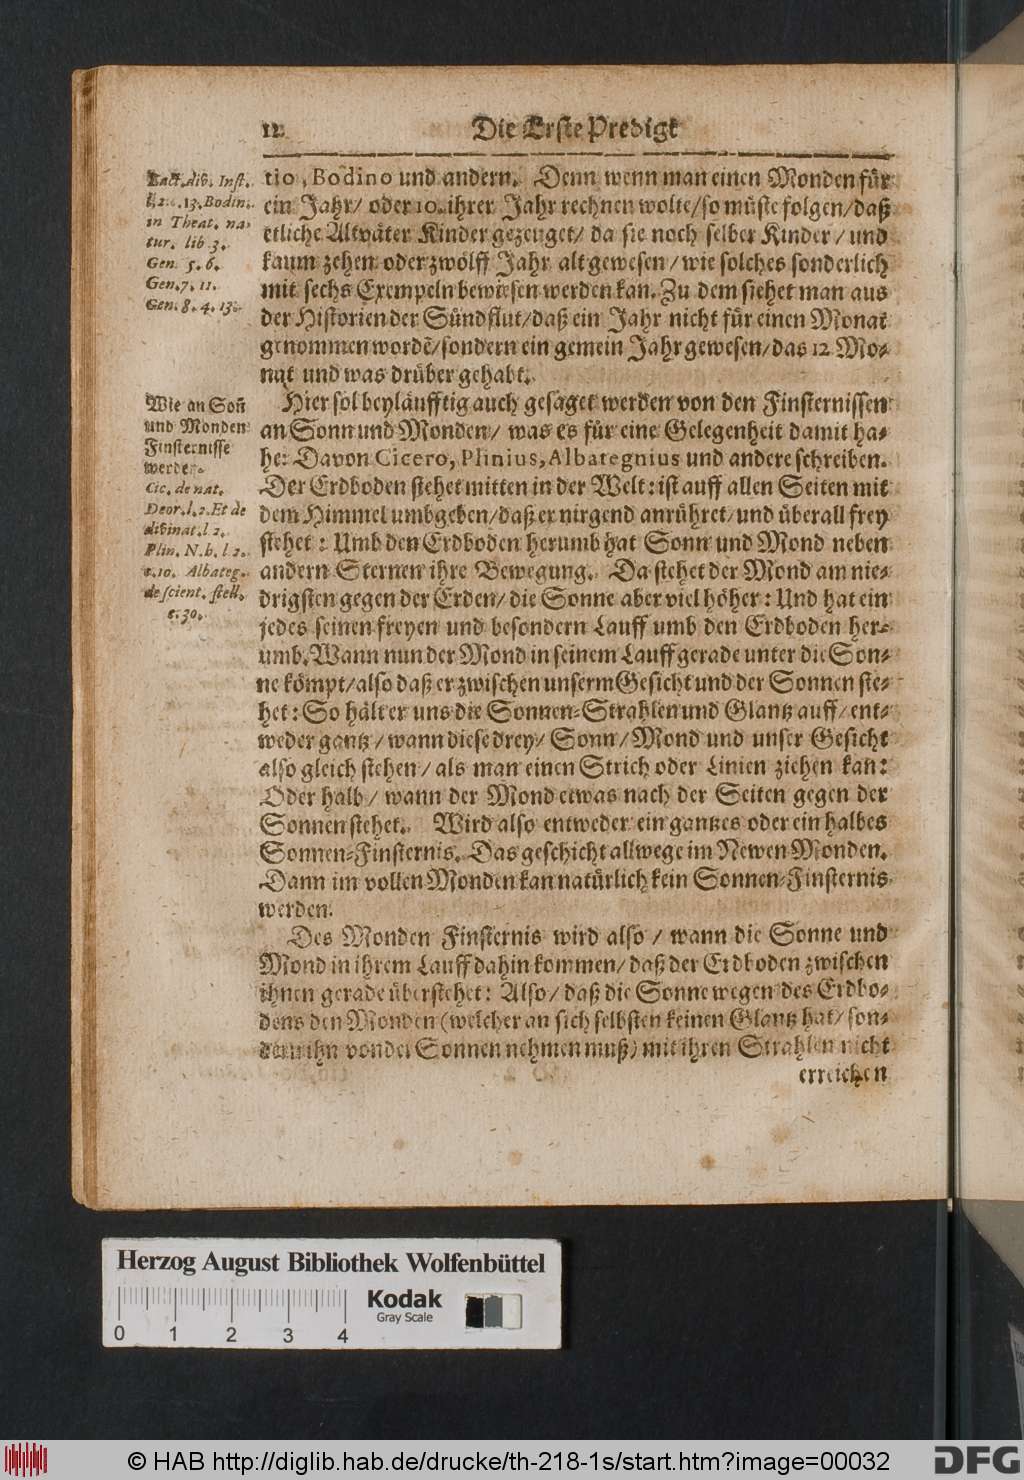 12 Die Erste Predigt
tio, Bodino und andern. Denn wenn man einen Monden für
ein Jahr/ oder 10. ihrer Jahr rechnen wolte/ so müste folgen/ daß
etliche Altväter Kinder gezeuget/ da sie noch selber Kinder/ und
kaum zehen oder zwölff Jahr alt gewesen/ wie solches sonderlich
mit sechs Exempeln bewiesen werden kan. Zu dem siehet man aus
der Historien der Sündflut/ daß ein Jahr nicht für einen Monat
genommen wordẽ/ sondern ein gemein Jahr gewesen/ das 12 Mo-
nat und was drüber gehabt.
Hier sol beyläufftig auch gesaget werden von den Finsternissen
an Sonn und Monden/ was es für eine Gelegenheit damit ha-
be: Davon Cicero, Plinius, Albategnius und andere schreiben.
Der Erdboden stehet mitten in der Welt: ist auff allen Seiten mit
dem Himmel umbgeben/ daß er nirgend anrühret/ und überall frey
stehet: Umb den Erdboden herumb hat Sonn und Mond neben
andern Sternen ihre Bewegung. Da stehet der Mond am nie-
drigsten gegen der Erden/ die Sonne aber viel höher: Und hat ein
jedes seinen freyen und besondern Lauff umb den Erdboden her-
umb. Wann nun der Mond in seinem Lauff gerade unter die Son-
ne kömpt/ also daß er zwischen unserm Gesicht und der Sonnen ste-
het: So hält er uns die Sonnen-Strahlen und Glantz auff/ ent-
weder gantz/ wann diese drey/ Sonn/ Mond und unser Gesicht
also gleich stehen/ als man einen Strich oder Linien ziehen kan:
Oder halb/ wann der Mond etwas nach der Seiten gegen der
Sonnen stehet. Wird also entweder ein gantzes oder ein halbes
Sonnen-Finsternis. Das geschicht allwege im Newen Monden.
Dann im vollen Monden kan natürlich kein Sonnen-Finsternis
werden.
Des Monden Finsternis wird also/ wann die Sonne und
Mond in ihrem Lauff dahin kommen/ daß der Erdboden zwischen
ihnen gerade überstehet: Also/ daß die Sonne wegen des Erdbo-
dens den Monden (welcher an sich selbsten keinen Glantz hat/ son-
dern ihn von der Sonnen nehmen muß) mit ihren Strahlen nicht
erreichen
Lact. div. Inst.
l. 2. c. 13. Bodin.
in Theat. na-
tur. lib 3.
Gen. 5. 6.
Gen. 7. 11.
Gen. 8. 4. 13.
Wie an Soñ
und Monden
Finsternisse
werden.
Cic. de nat.
Deor. l. 2. Et de
divinat. l 2.
Plin. N. h. l 2.
c. 10. Albateg.
de scient. stell.
c. 30.
Herzog August Bibliothek Wolfenbüttel
Kodak
Gray Scale
0 1 2 3 4
© HAB http://diglib.hab.de/drucke/th-218-1s/start.htm?image=00032
DFG